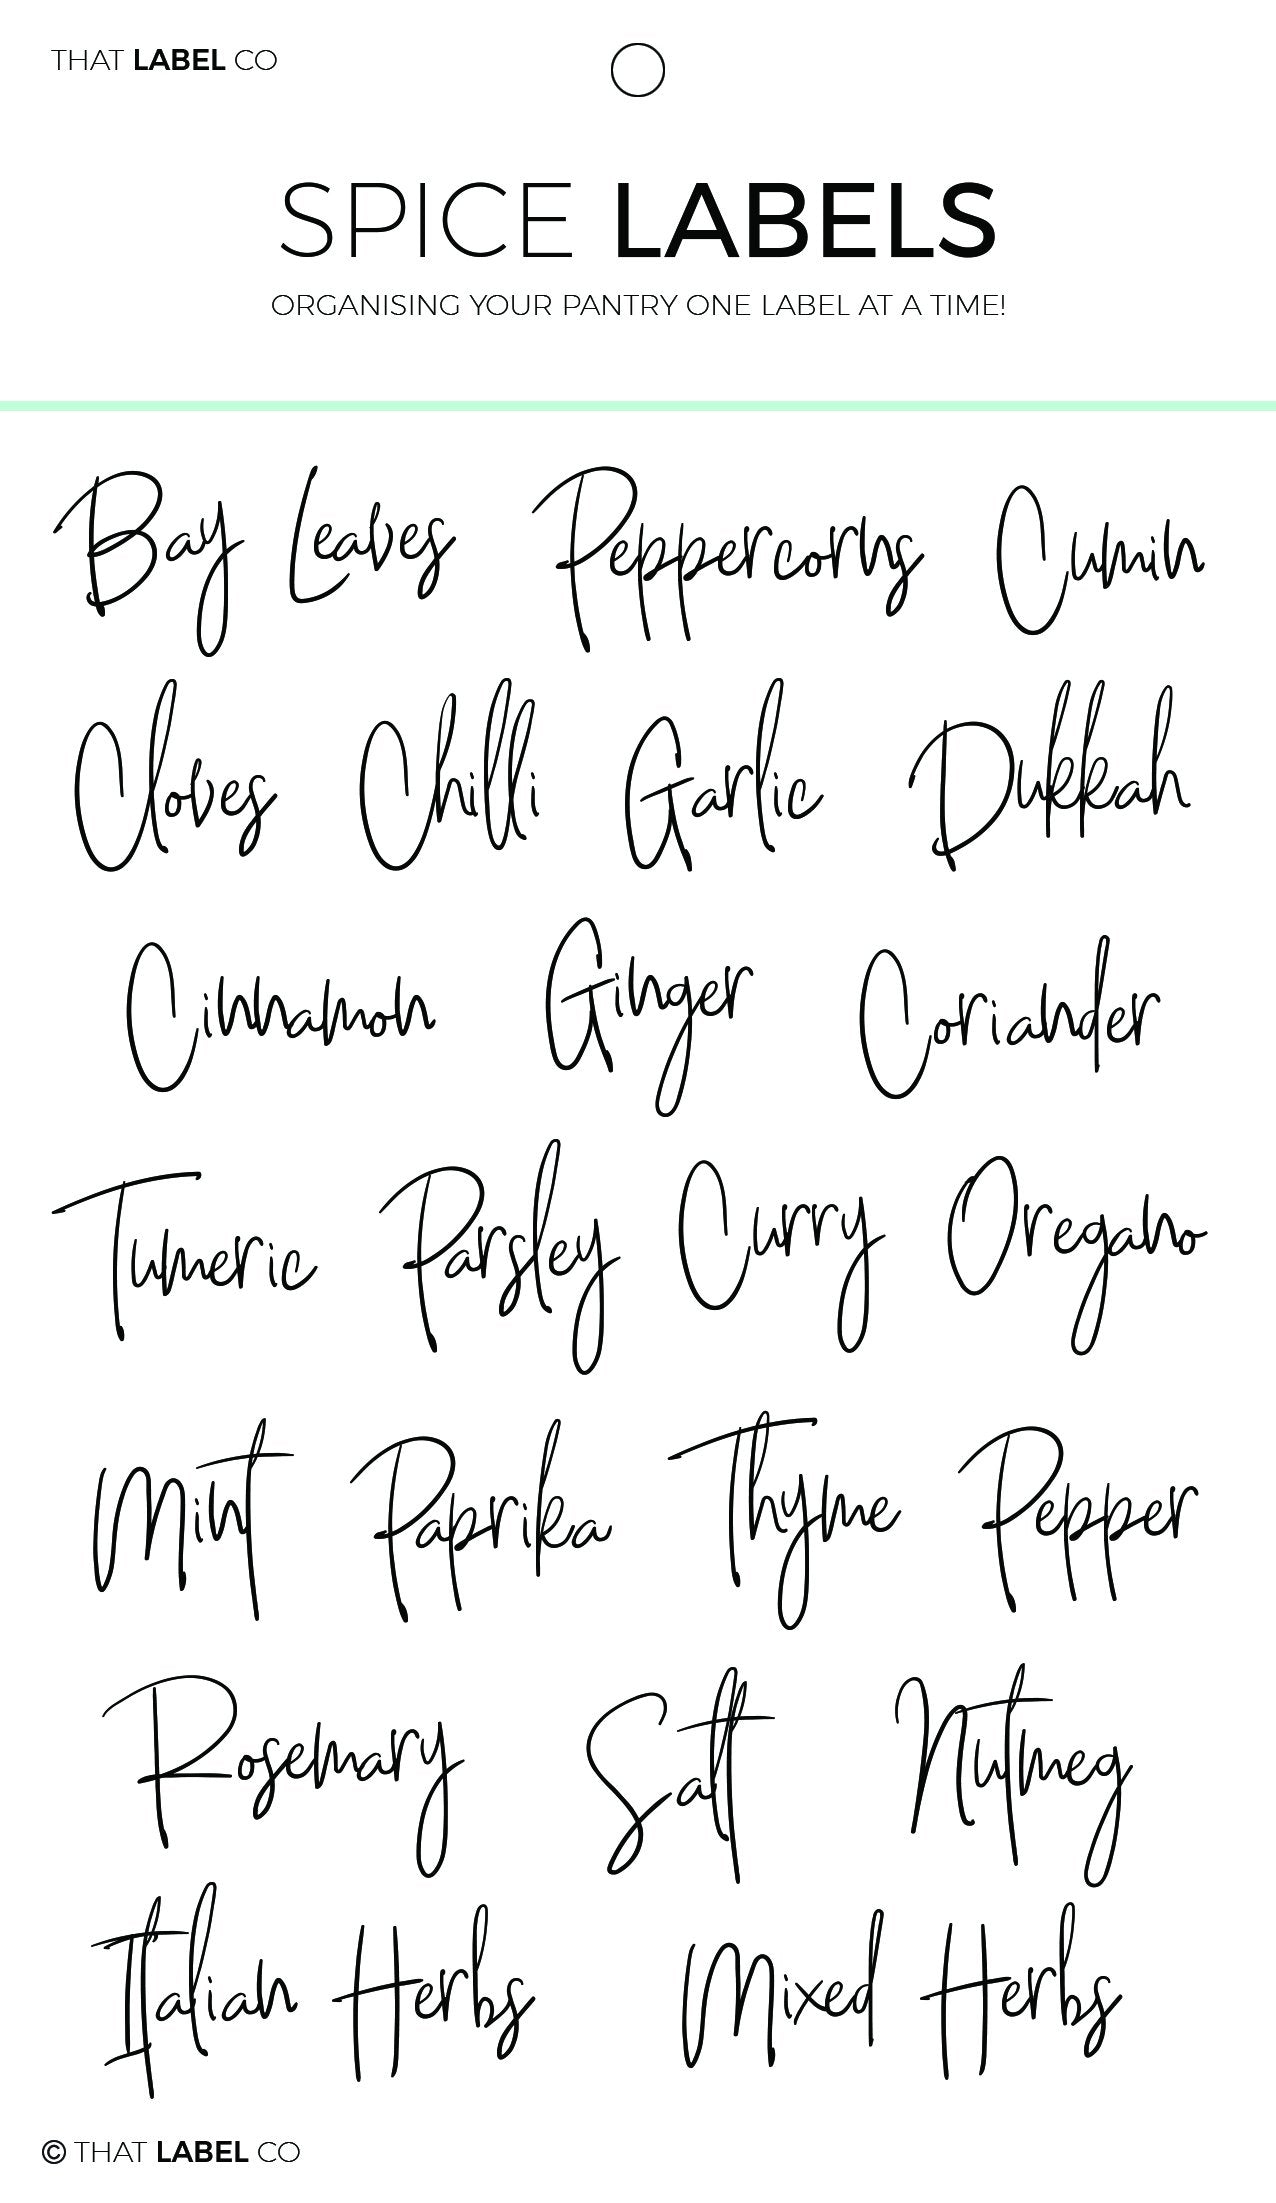 THAT LABEL CO
SPICE LABELS
ORGANISING YOUR PANTRY ONE LABEL AT A TIME!
Bay Leaves Peppercorns Cumin
Cloves Chilli Garlic Dukkah
Cinnamon Ginger Coriander
Tumeric Parsley Curry Oregano
Mint Paprika Thyme Pepper
Rosemary Salt Nutmeg
Italian Herbs Mixed Herbs
© THAT LABEL CO